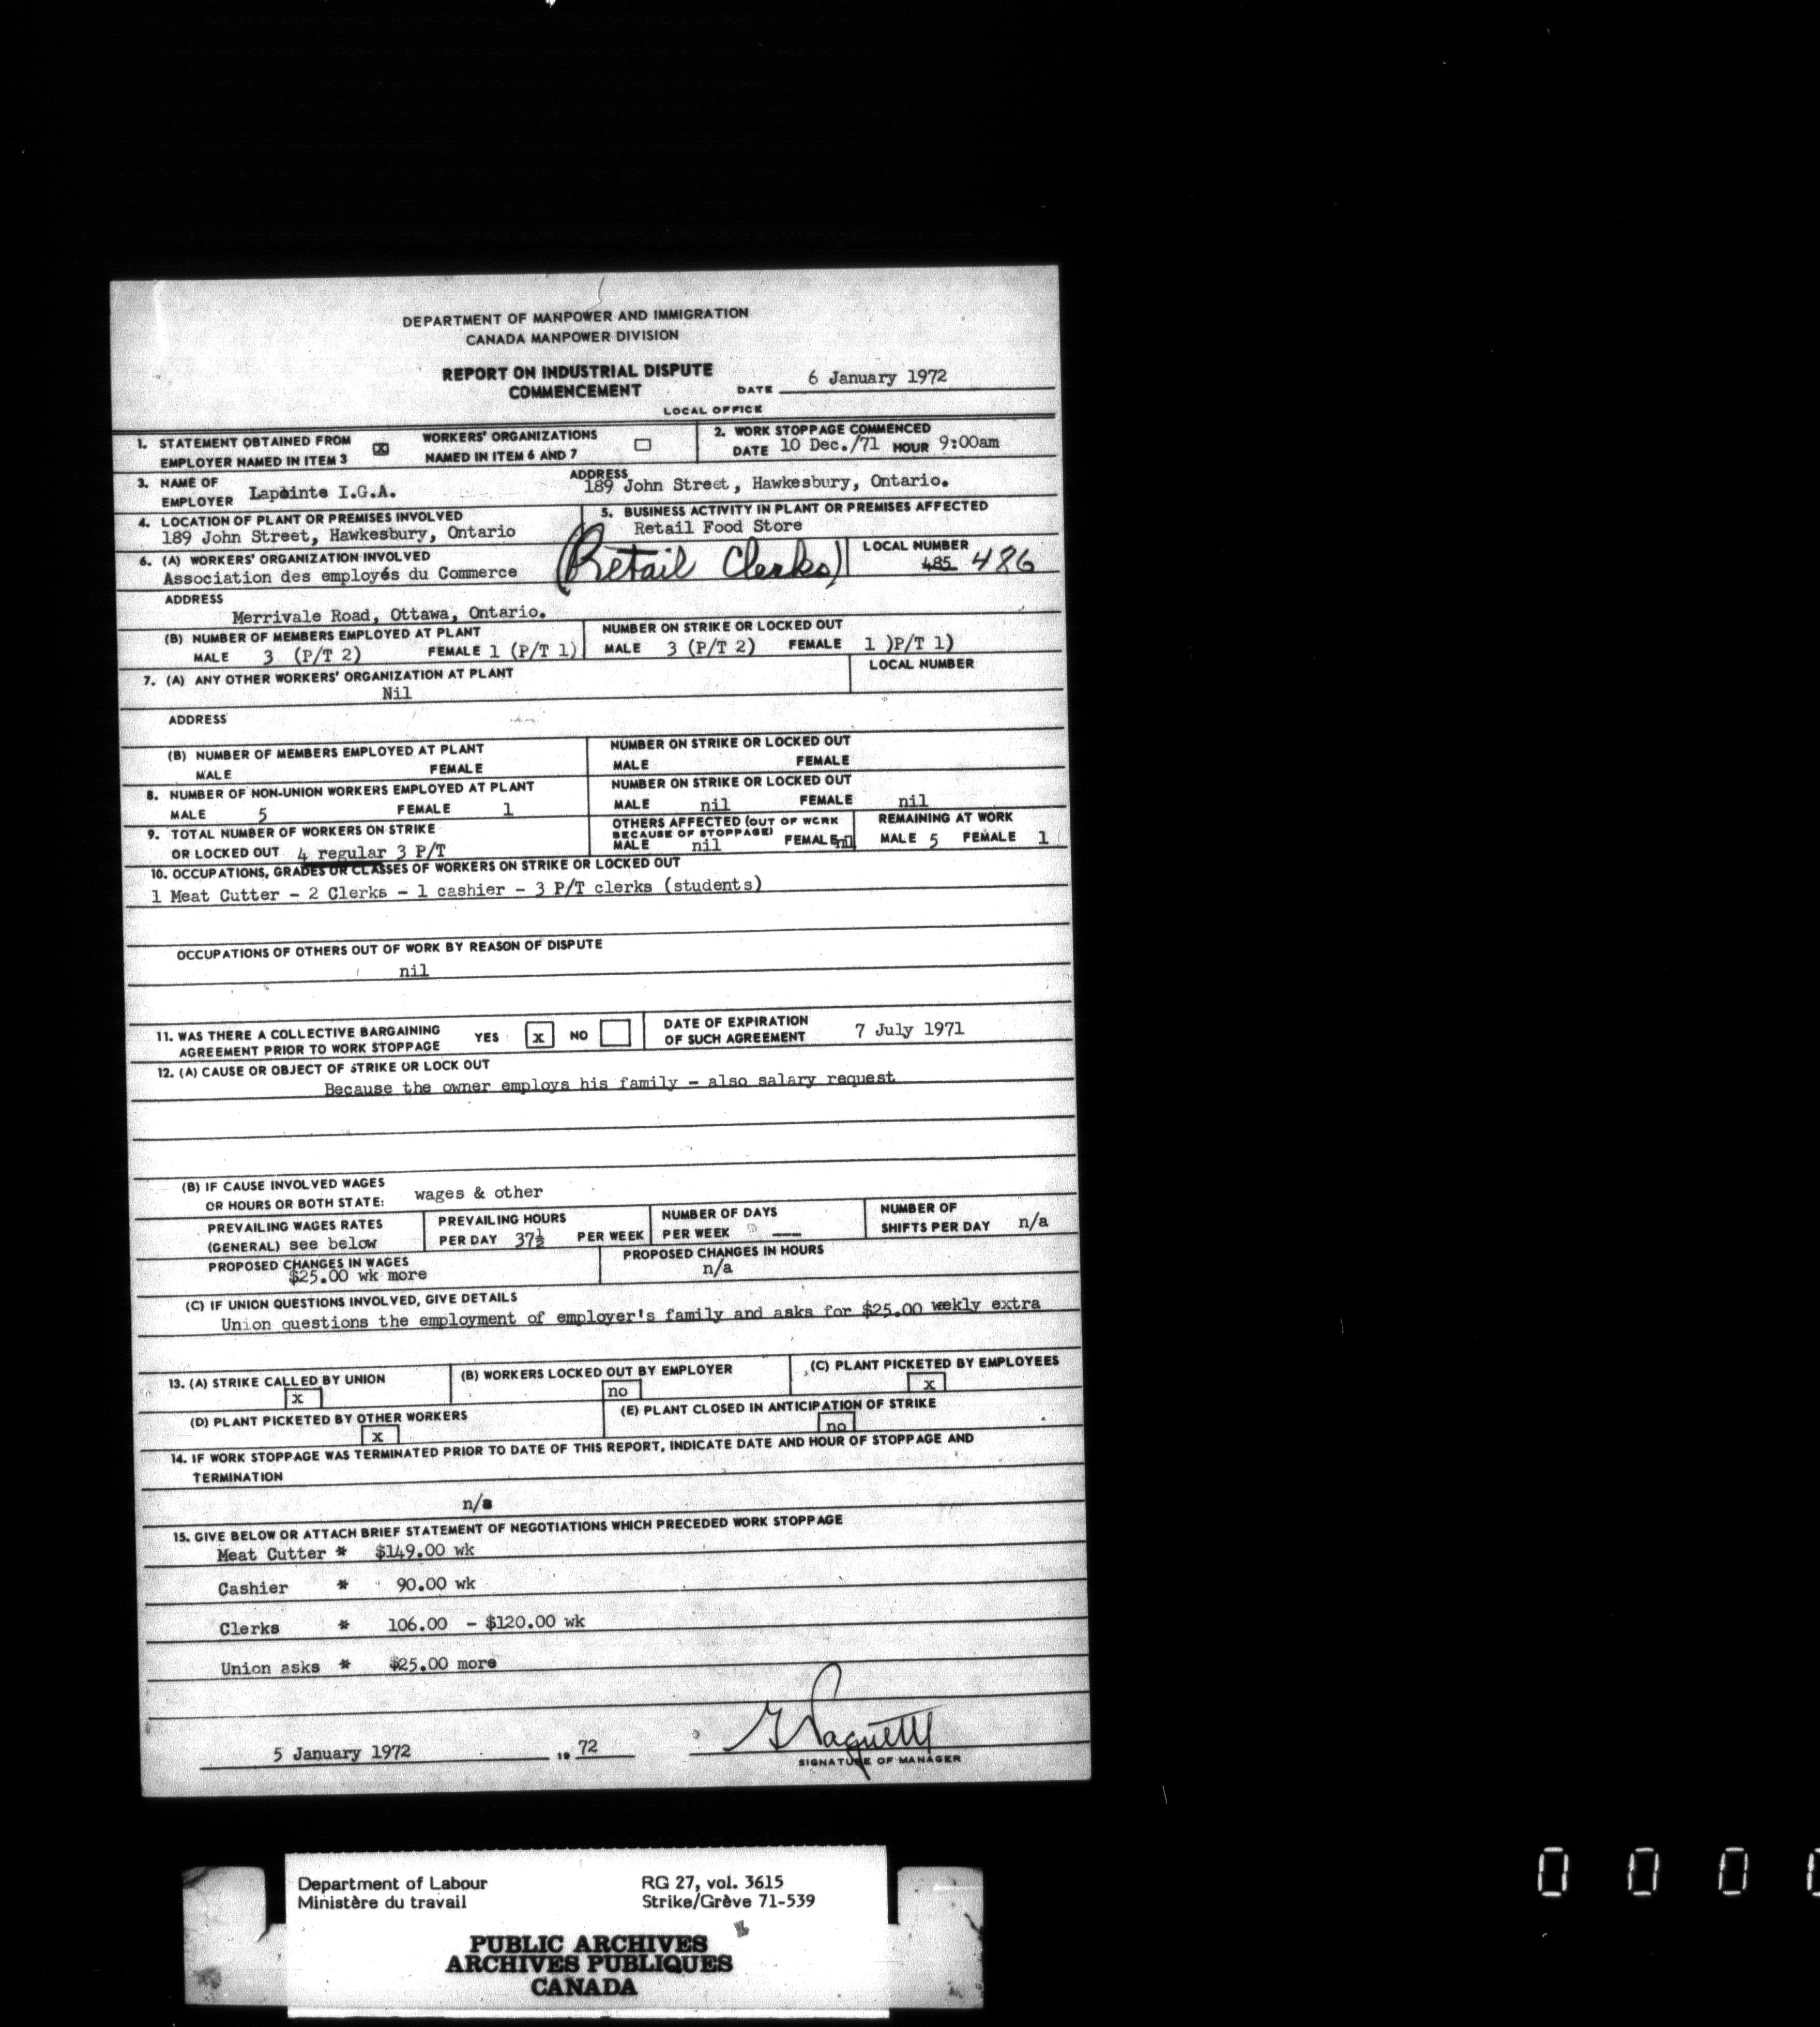 DEPARTMENT OF MANPOWER AND IMMIGRATION
CANADA MANPOWER DIVISION
REPORT ON INDUSTRIAL DISPUTE
COMMENCEMENT
DATE 6 January 1972
LOCAL OFFICE
1. STATEMENT OBTAINED FROM EMPLOYER NAMED IN ITEM 3 [x] WORKERS' ORGANIZATIONS NAMED IN ITEM 6 AND 7 [ ]
2. WORK STOPPAGE COMMENCED
DATE 10 Dec./71 HOUR 9:00am
3. NAME OF EMPLOYER Lapointe I.G.A.
ADDRESS 189 John Street, Hawkesbury, Ontario.
4. LOCATION OF PLANT OR PREMISES INVOLVED
189 John Street, Hawkesbury, Ontario
5. BUSINESS ACTIVITY IN PLANT OR PREMISES AFFECTED
Retail Food Store
6. (A) WORKERS' ORGANIZATION INVOLVED
Association des employés du Commerce
(Retail Clerks)
LOCAL NUMBER
485 486
ADDRESS
Merrivale Road, Ottawa, Ontario.
(B) NUMBER OF MEMBERS EMPLOYED AT PLANT
MALE 3 (P/T 2) FEMALE 1 (P/T 1)
NUMBER ON STRIKE OR LOCKED OUT
MALE 3 (P/T 2) FEMALE 1 )P/T 1)
7. (A) ANY OTHER WORKERS' ORGANIZATION AT PLANT
Nil
LOCAL NUMBER
ADDRESS
(B) NUMBER OF MEMBERS EMPLOYED AT PLANT
MALE FEMALE
NUMBER ON STRIKE OR LOCKED OUT
MALE FEMALE
8. NUMBER OF NON-UNION WORKERS EMPLOYED AT PLANT
MALE 5 FEMALE 1
NUMBER ON STRIKE OR LOCKED OUT
MALE nil FEMALE nil
9. TOTAL NUMBER OF WORKERS ON STRIKE
OR LOCKED OUT 4 regular 3 P/T
OTHERS AFFECTED (OUT OF WORK
BECAUSE OF STOPPAGE)
MALE nil FEMALE nil
REMAINING AT WORK
MALE 5 FEMALE 1
10. OCCUPATIONS, GRADES OR CLASSES OF WORKERS ON STRIKE OR LOCKED OUT
1 Meat Cutter - 2 Clerks - 1 cashier - 3 P/T clerks (students)
OCCUPATIONS OF OTHERS OUT OF WORK BY REASON OF DISPUTE
nil
11. WAS THERE A COLLECTIVE BARGAINING
AGREEMENT PRIOR TO WORK STOPPAGE YES [x] NO [ ]
DATE OF EXPIRATION
OF SUCH AGREEMENT 7 July 1971
12. (A) CAUSE OR OBJECT OF STRIKE OR LOCK OUT
Because the owner employs his family - also salary request
(B) IF CAUSE INVOLVED WAGES
OR HOURS OR BOTH STATE: wages & other
PREVAILING WAGES RATES
(GENERAL) see below
PREVAILING HOURS
PER DAY 37½ PER WEEK
NUMBER OF DAYS
PER WEEK ---
NUMBER OF
SHIFTS PER DAY n/a
PROPOSED CHANGES IN WAGES
$25.00 wk more
PROPOSED CHANGES IN HOURS
n/a
(C) IF UNION QUESTIONS INVOLVED, GIVE DETAILS
Union questions the employment of employer's family and asks for $25.00 wekly extra
13. (A) STRIKE CALLED BY UNION
x
(B) WORKERS LOCKED OUT BY EMPLOYER
no
(C) PLANT PICKETED BY EMPLOYEES
x
(D) PLANT PICKETED BY OTHER WORKERS
x
(E) PLANT CLOSED IN ANTICIPATION OF STRIKE
no
14. IF WORK STOPPAGE WAS TERMINATED PRIOR TO DATE OF THIS REPORT, INDICATE DATE AND HOUR OF STOPPAGE AND
TERMINATION
n/a
15. GIVE BELOW OR ATTACH BRIEF STATEMENT OF NEGOTIATIONS WHICH PRECEDED WORK STOPPAGE
Meat Cutter * $149.00 wk
Cashier * 90.00 wk
Clerks * 106.00 - $120.00 wk
Union asks * $25.00 more
5 January 1972 19 72
SIGNATURE OF MANAGER
Department of Labour
Ministère du travail
RG 27, vol. 3615
Strike/Grève 71-539
PUBLIC ARCHIVES
ARCHIVES PUBLIQUES
CANADA
0 0 0